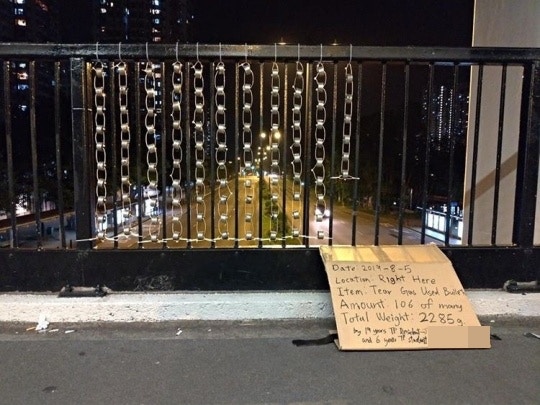 Date: 2019-8-5
Location: Right Here
Item: Tear Gas Used Bullet
Amount 106 of many
Total Weight: 2285g
by 19 years TP
and 6 years TP student